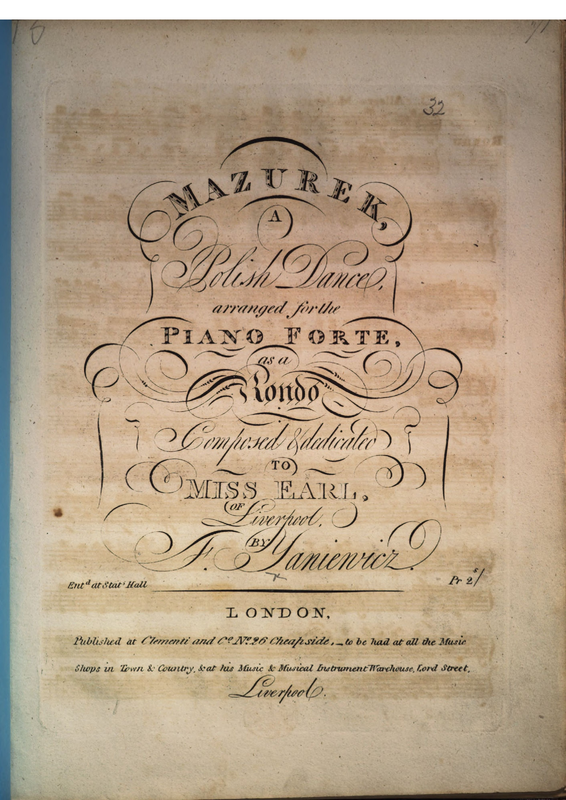 32
MAZUREK,
A
Polish Dance,
arranged for the
PIANO FORTE,
as a
Rondo
Composed & dedicated
TO
MISS EARL,
OF
Liverpool,
BY
F. Yaniewicz.
Entd. at Stats. Hall
Pr 2s/
LONDON,
Published at Clementi and Co. No. 26 Cheapside, _ to be had at all the Music
Shops in Town & Country, & at his Music & Musical Instrument Warehouse, Lord Street,
Liverpool.